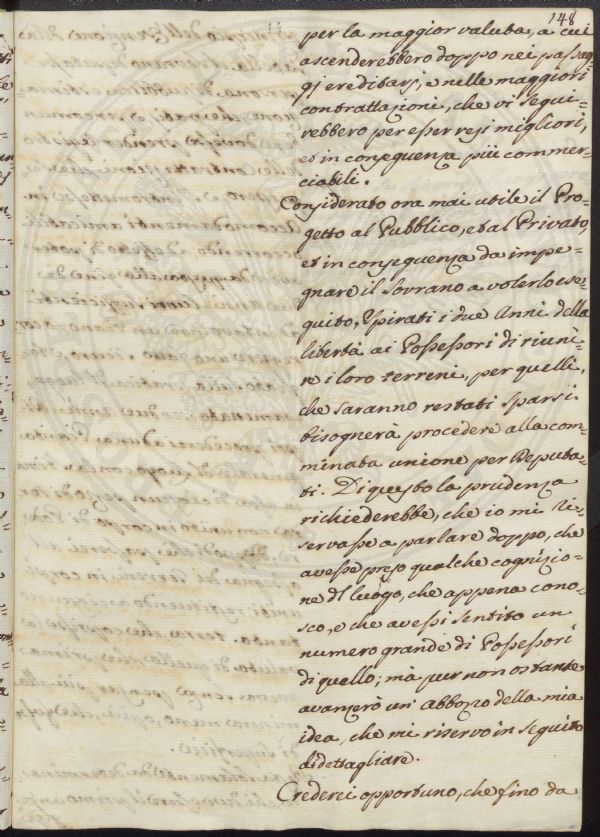 148
per la maggior valuta, a cui
ascenderebbero doppo nei passag=
gj ereditarj, e nelle maggiori
contrattazioni, che vi segui=
rebbero per esser resi migliori,
et in conseguenza più commer=
ciabili.
Considerato ora mai utile il Pro=
getto al Pubblico, et al Privato,
et in conseguenza da impe=
gnare il Sovrano a volerlo ese=
quito, Spirati i due Anni della
libertà ai Possessori di riuni=
re i loro terreni, per quelli,
che saranno restati sparsi
bisognerà procedere alla com=
minata unione per Deputa=
ti. Di questo la prudenza
richiederebbe, che io mi ri=
servasse a parlare doppo, che
avesse preso qualche cognizio=
ne dl luogo, che appena cono=
sco, e che avessi sentito un
numero grande di Possessori
di quello; mà pur non ostante
avanzerò un' abbozzo della mia
idea, che mi riservo in seguito
di dettagliare.
Crederei opportuno, che fino da